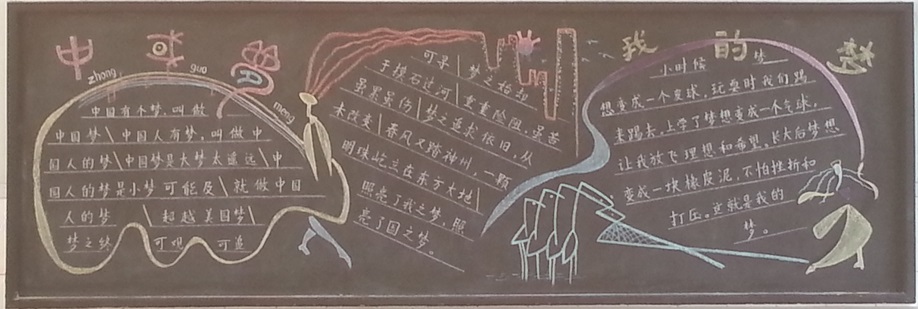 中国梦
zhong guo meng
中国有个梦，叫做
中国梦\中国人有梦，叫做中
国人的梦\中国梦是大梦太遥远\中
国人的梦是小梦可能及\就做中国
人的梦 \超越美国梦\
梦之终 可观 可追
可寻\梦之始却
于摸石过河\重重险阻，虽苦
虽累虽伤\梦之追求依旧，从
未改变\春风又踏神州，一颗
明珠屹立在东方大地\
照亮了我之梦，照
亮了国之梦。
我的梦
小时候 梦
想变成一个皮球，玩耍时我们踢
来踢去，上学了梦想变成一个气球，
让我放飞理想和希望。长大后梦想
变成一块橡皮泥，不怕挫折和
打压。这就是我的
梦。